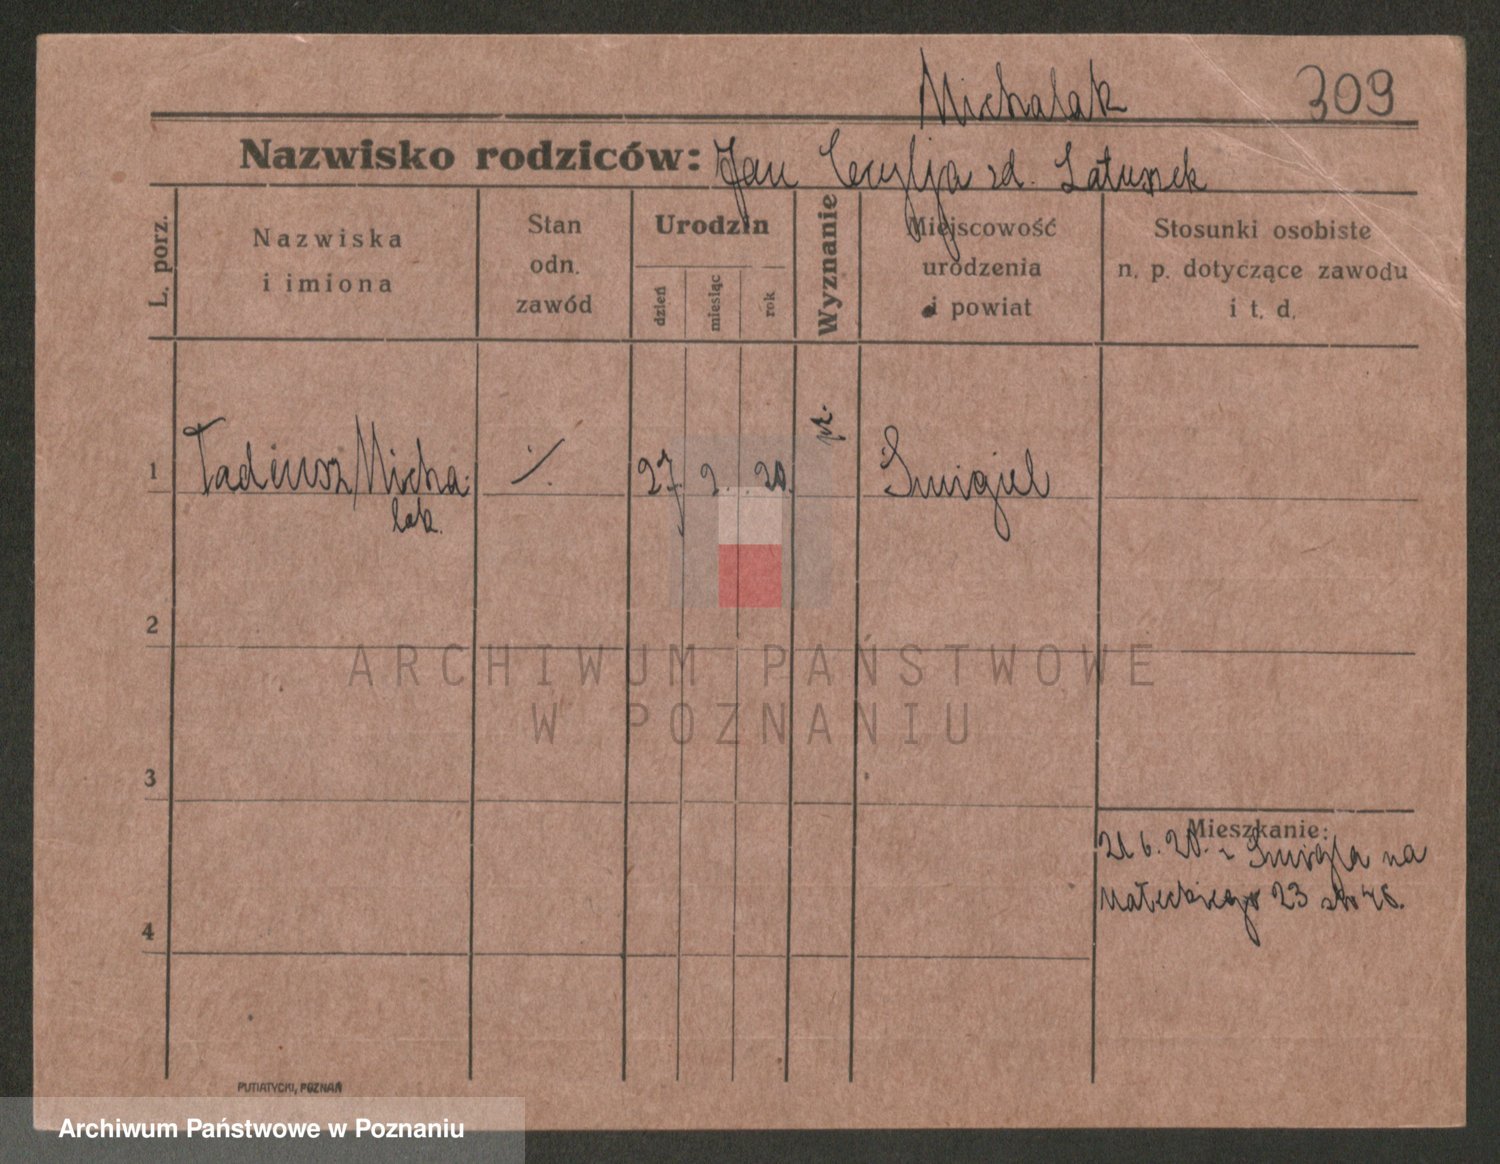 Michalak 309
Nazwisko rodziców: Jan Cecylja zd. Latuszek
L. porz.
Nazwiska
i imiona
Stan
odn.
zawód
Urodzin
dzień
miesiąc
rok
Wyznanie
Miejscowość
urodzenia
i powiat
Stosunki osobiste
n. p. dotyczące zawodu
i t. d.
1 Tadeusz Micha-
lak. 27. 2. 20. Śmigiel
2
3
4
Mieszkanie:
21.6.20. z Śmigla na
Małeckiego 23
PUTIATYCKI, POZNAŃ
ARCHIWUM PAŃSTWOWE
W POZNANIU
Archiwum Państwowe w Poznaniu